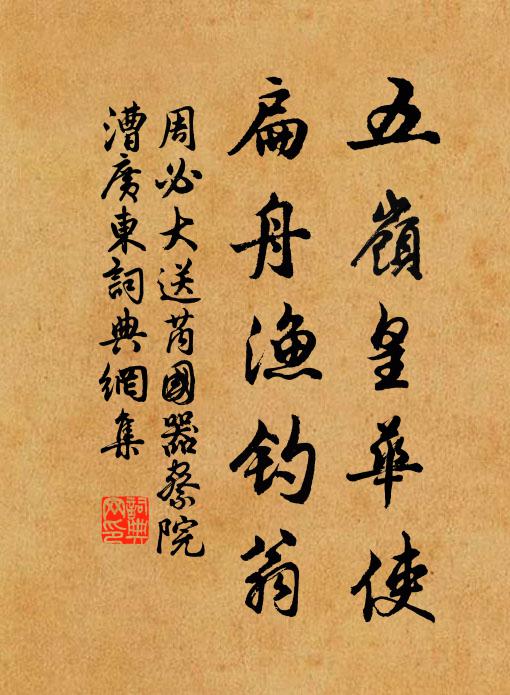 五嶺皇華使
扁舟漁釣翁
周必大送芮國器察院
漕廣東詞典網集
詞典
网印